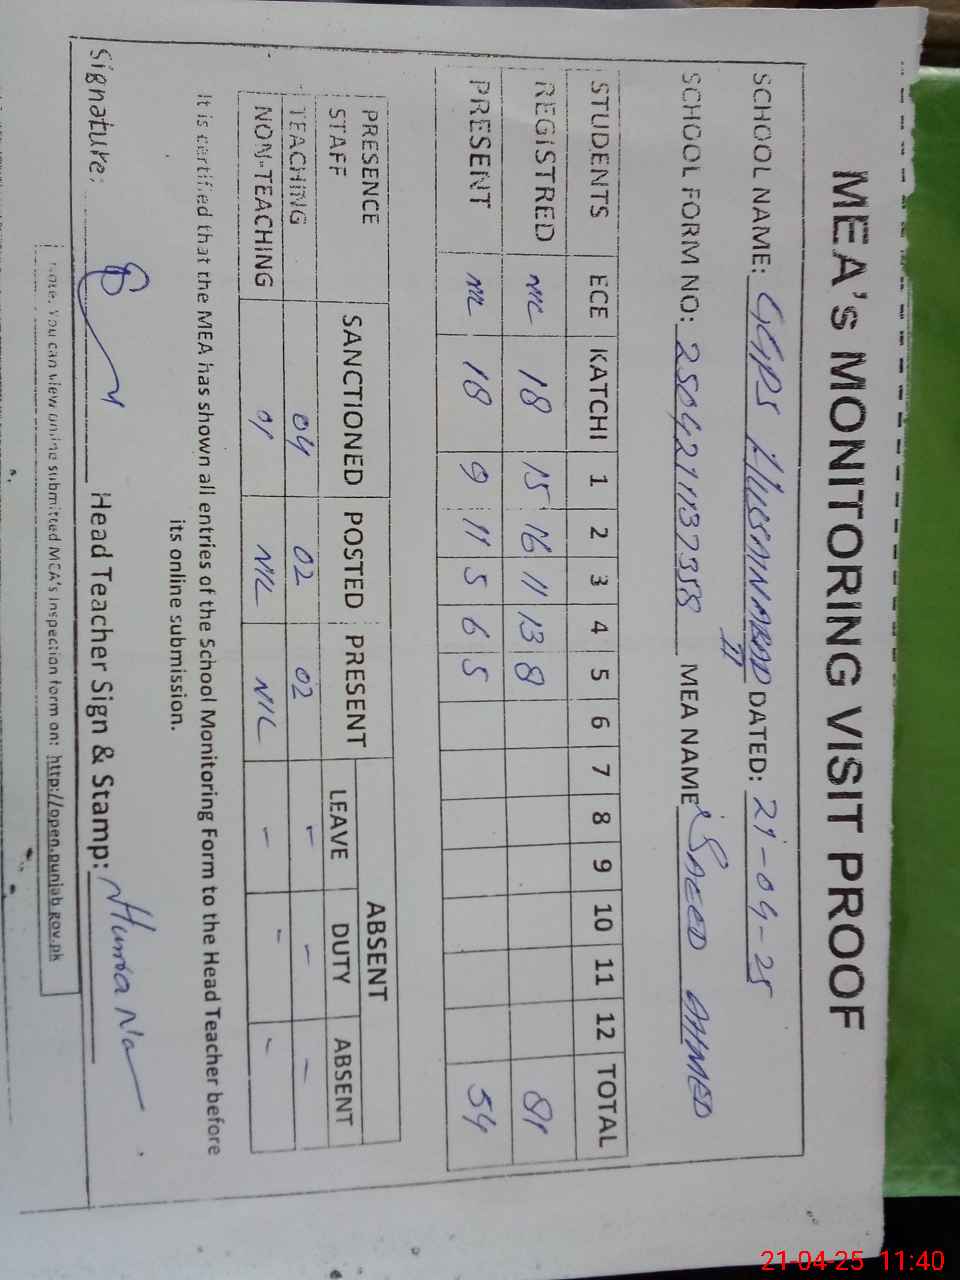 MEA's MONITORING VISIT PROOF
SCHOOL NAME: GGPS HUSSAINABAD II DATED: 21-04-25
SCHOOL FORM NO: MEA NAME: SAEED AHMED
STUDENTS ECE KATCHI 1 2 3 4 5 6 7 8 9 10 11 12 TOTAL
REGISTRED NIL 18 15 16 11 13 8 81
PRESENT NIL 18 9 11 5 6 5 54
PRESENCE STAFF SANCTIONED POSTED PRESENT ABSENT
LEAVE DUTY ABSENT
TEACHING 04 02 02 - - -
NON-TEACHING 01 NIL NIL - - -
It is certified that the MEA has shown all entries of the School Monitoring Form to the Head Teacher before
its online submission.
Signature: Head Teacher Sign & Stamp: Huma
Note. You can view online submitted MEA's inspection form on: http://open.punjab.gov.pk
21-04-25 11:40